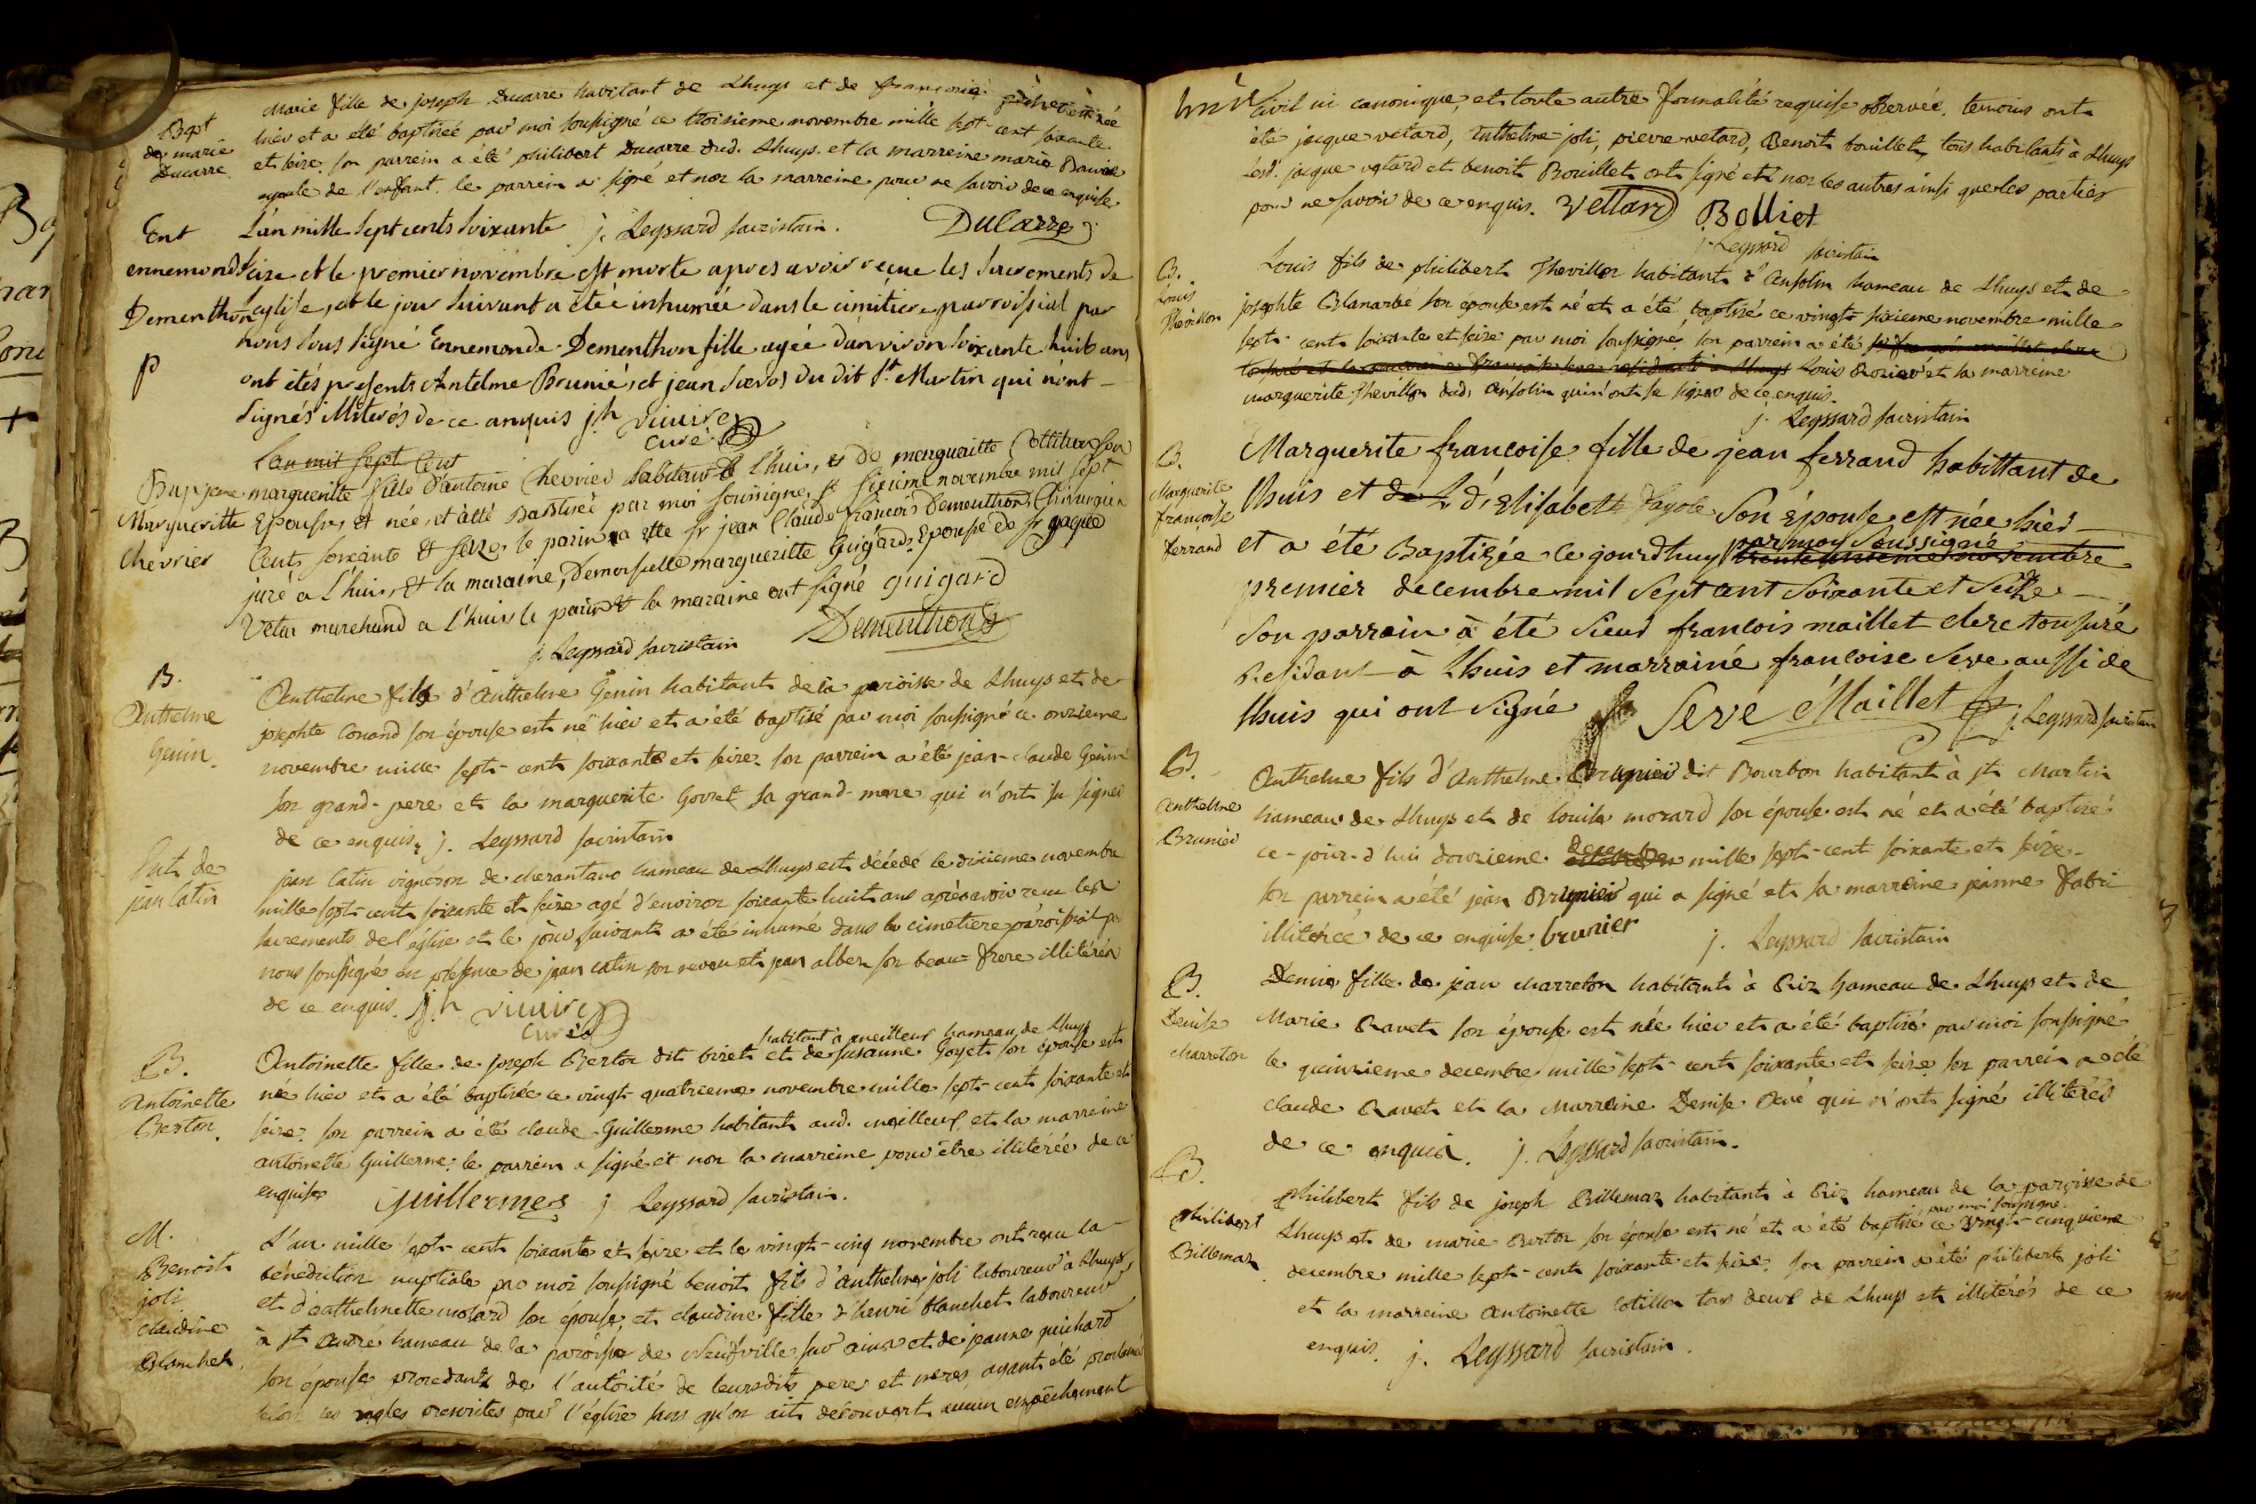 Bapt
de marie
Ducarre
Marie fille de joseph Ducarre habitant de Lhuys et de françoise est née
hier et a été baptisée par moi soussigné ce troisieme novembre mille sept-cent soixante
et seize. son parrein a été philibert Ducarre dud. Lhuys. et la marreine marie
ayeule de l'enfant. le parrein a signé et non la marreine pour ne savoir de ce enquise
j. Leyssard sacristain. DuCarre
Ent
ennemonde
Dementhon
p
L'an mille sept cents soixante
seize et le premier novembre est morte apres avoir reçue les sacrements de
l'eglise, et le jour suivant a étéé inhumée dans le cimitiere parroissial par
nous sous signé Ennemonde Dementhon fille agéé d'anviron soixante huit ans
ont étés presents Antelme Brunié, et jean du dit st. Martin qui n'ont
signés illiterés de ce anquis jh vuivre
curé
L'an mil sept Cent
Bapt
Margueritte
Chevrier
jeane margueritte fille d'antoine Chevrier habitant de Lhuis, et de margueritte Cottilion son
Epouse, et née, et a été Baptisée par moi soussigné, le sixieme novembre mil sept
Cents soixante et seize, le parin a ette sr jean Claude francois Dementhon Chirurgien
juré a Lhuis, et la maraine, Demoiselle margueritte Guigard, Epouse de sr jaque
Vetar marchand a Lhuis le parin et la maraine ont signé guigard
j. Leyssard sacristain Dementhon
B.
Anthelme
Genin.
Anthelme fils d'Anthelme Genin habitant de la paroisse de Lhuys et de
josephte Conand son épouse est né hier et a été baptisé par moi soussigné ce onzieme
novembre mille sept-cent soixante et seize. son parrein a été jean-claude Genin
son grand-pere et la marguerite Govret sa grand-mere qui n'ont su signer
de ce enquis. j. Leyssard sacristain
Ent. de
jean Catin
jean Catin vigneron de cherantano hameau de Lhuys est décédé le dixieme novembre
mille sept-cent soixante et seize agé d'environ soixante huit ans après avoir recu les
sacrements de l'église et le jour suivant a été inhumé dans le cimetiere paroissial par
nous soussigné en présence de jean Catin son neveu et jean alber son beau-frere illitérés
de ce enquis. j.h vuivre
curé
B.
Antoinette
Berton.
habitant à meilleur hameau de Lhuys
Antoinette fille de joseph Berton dit biret et de susanne Goyet son épouse est
née hier et a été baptisée ce vingt quatrieme novembre mille sept-cent soixante et
seize. son parrein a été claude Guillerme habitant aud. meilleur et la marreine
antoinette Guillerme; le parrein a signé et non la marreine pour être illitérée de ce
enquise Guillermes j Leyssard sacristain.
M.
Benoit
joli
claudine
Blanchet.
L'an mille sept-cent soixante et seize et le vingt-cinq novembre ont reçu la
bénédiction nuptiale par moi soussigné benoit fils d'anthelme joli laboureur à Lhuys
et d'anthelmette motard son épouse, et claudine fille d'henri blanchet laboureur
à st. André hameau de la paroisse de Neufville sur ains et de jeanne guichard
son épouse procedants de l'autorité de leursdits peres et meres, ayant été proclamés
selon les regles prescrites par l'église sans qu'on ait découvert aucun empêchement
civil ni canonique, et toute autre formalité requise observée. temoins ont
été jacque vetard, anthelme joli, pierre vetard, Benoit bouillet, tous habitants à Lhuys
lesd. jacque vetard et benoit Bouillet ont signé et non les autres ainsi que les parties
pour ne savoir de ce enquis. Vettard Bolliet
j. Leyssard sacristain
B.
Louis
Thevillon
Louis fils de philibert Thevillon habitant d'ansolin hameau de Lhuys et de
josephte Blanarbé son épouse est né et a été baptisé ce vingt sixieme novembre mille
sept-cent soixante et seize par moi soussigné son parrein a été
Louis Rozier et la marreine
marguerite Thevillon dud. ansolin qui n'ont su signer de ce enquis.
j. Leyssard sacristain
B.
Marguerite
françoise
ferrand
Marguerite francoise fille de jean ferrand habittant de
Lhuis et de L d'Elisabeth Payote son épouse est née hier
et a été Baptizée ce jourdhuy par moy soussigné trente unieme novembre
premier decembre mil sept cent soixante et seize
son parrain à été sieur francois maillet clerc tonsuré
Residant à Lhuis et marrainé francoise Seve aussi de
Lhuis qui ont signé Sevé Maillet j. Leyssard sacristain
B.
Anthelme
Brunier
Anthelme fils d'Anthelme Brunier dit Bourbon habitant à st. Martin
hameau de Lhuys et de louise morard son épouse est né et a été baptisé
ce-jour-d'hui douzieme decembre mille sept-cent soixante et seize.
son parrein a été jean Brunier qui a signé et sa marreine jeanne fabri
illitérée de ce enquise. brunier j. Leyssard sacristain
B.
Denise
charreton
Denise fille de jean charreton habitant à Rix hameau de Lhuys et de
Marie Ravet son épouse est née hier et a été baptisé par moi soussigné
le quinzieme decembre mille sept-cent soixante et seize son parrein a été
claude Ravet et la Marreine Denise Revé qui n'ont signé illitérés
de ce enquis. j. Leyssard sacristain.
B.
Philibert
Billemaz
Philibert fils de joseph Billemaz habitant à Rix hameau de la paroisse de
Lhuys et de marie Berton son épouse est né et a été baptisé par moi soussigné ce vingt-cinquieme
decembre mille sept-cent soixante et seize. son parrein a été philibert joli
et la marreine Antoinette Cotillon tous deux de Lhuys et illitérés de ce
enquis. j. Leyssard sacristain.